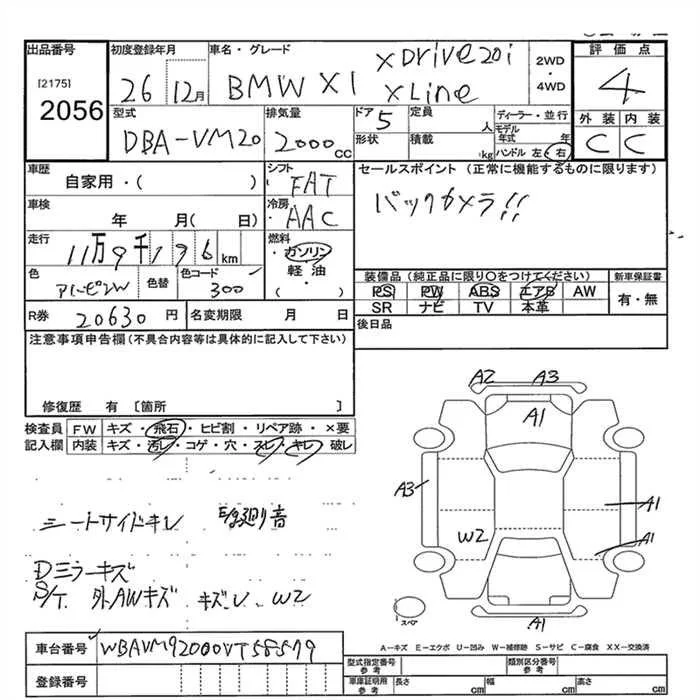 出品番号 初度登録年月 車名・グレード 評価点
[2175]
2056
26 12月 BMW X1 xDrive20i xLine 2WD・4WD 4
型式 排気量 ドア 定員 ディーラー・並行 外装 内装
DBA-VM20 2000cc 5 人 モデル年式 年 C C
形状 積載 kg ハンドル 左・右
車歴 シフト セールスポイント (正常に機能するものに限ります)
自家用・( ) FAT バックカメラ!!
車検 冷房
年 月(日) AAC
走行 燃料
11万9千196km ガソリン
色 色替 色コード 軽油・ 装備品(純正品に限り○をつけてください) 新車保証書
300 ( ) PS PW ABS エアB AW 有・無
SR ナビ TV 本革
R券 20630円 名変期限 月 日 後日品
注意事項申告欄(不具合内容等は具体的に記入して下さい)
修復歴 有 [箇所 ]
検査員 FW キズ・飛石・ヒビ割・リペア跡・×要
記入欄 内装 キズ・汚レ・コゲ・穴・スレ・キレ・破レ
A2 A3
A1
A3 A1
W2 A1
A1
スペア
シートサイドキレ
Dミラーキズ
S/T 外AWキズ キズレ W2
車台番号 WBAVM92000VT58579
登録番号
A−キズ E−エクボ U−凹み W−補修跡 S−サビ C−腐食 XX−交換済
型式指定番号 参考 類別区分番号 参考
車庫証明用 参考 長さ cm 幅 cm 高さ cm